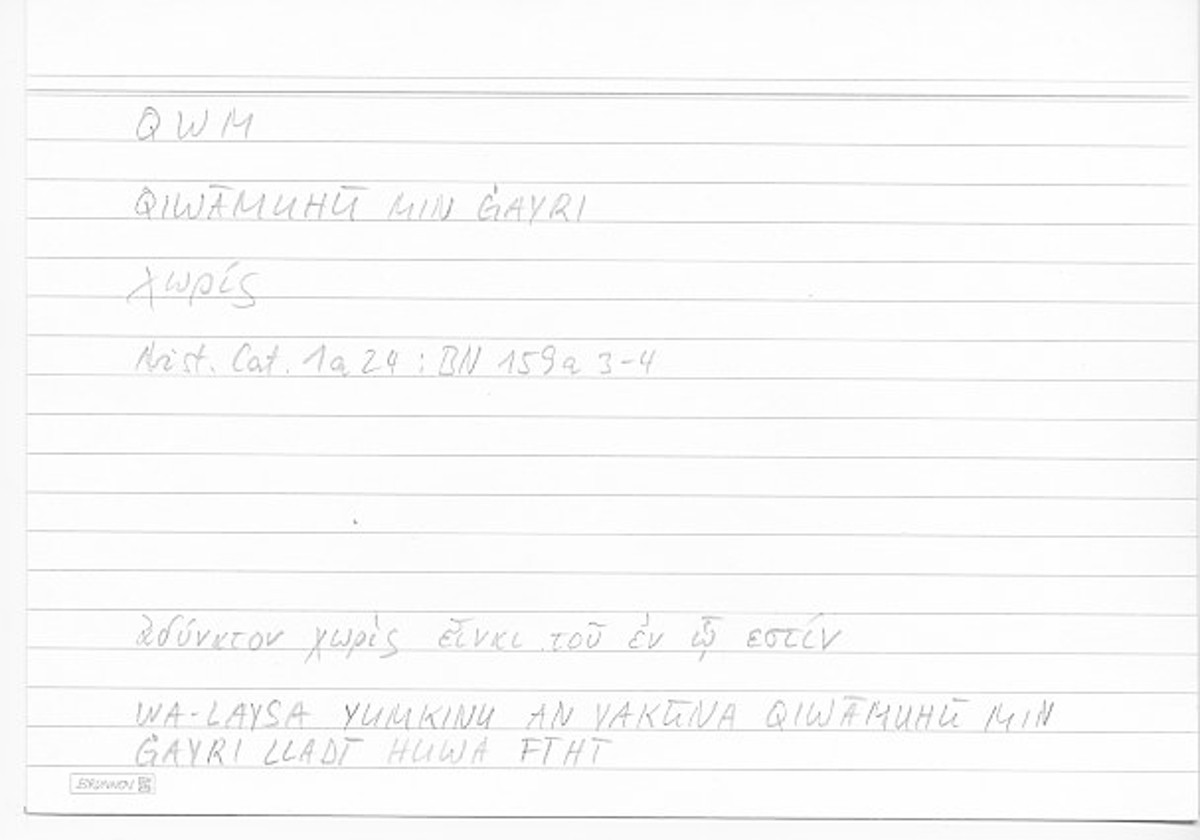 QWM
QIWĀMUHŪ MIN ĠAYRI
χωρίς
Arist. Cat. 1a24 : BN 159a 3-4
ἀδύνατον χωρὶς εἶναι τοῦ ἐν ᾧ ἐστίν
WA-LAYSA YUMKINU AN YAKŪNA QIWĀMUHŪ MIN
ĠAYRI LLADĪ HUWA FĪHĪ
BRUNNEN